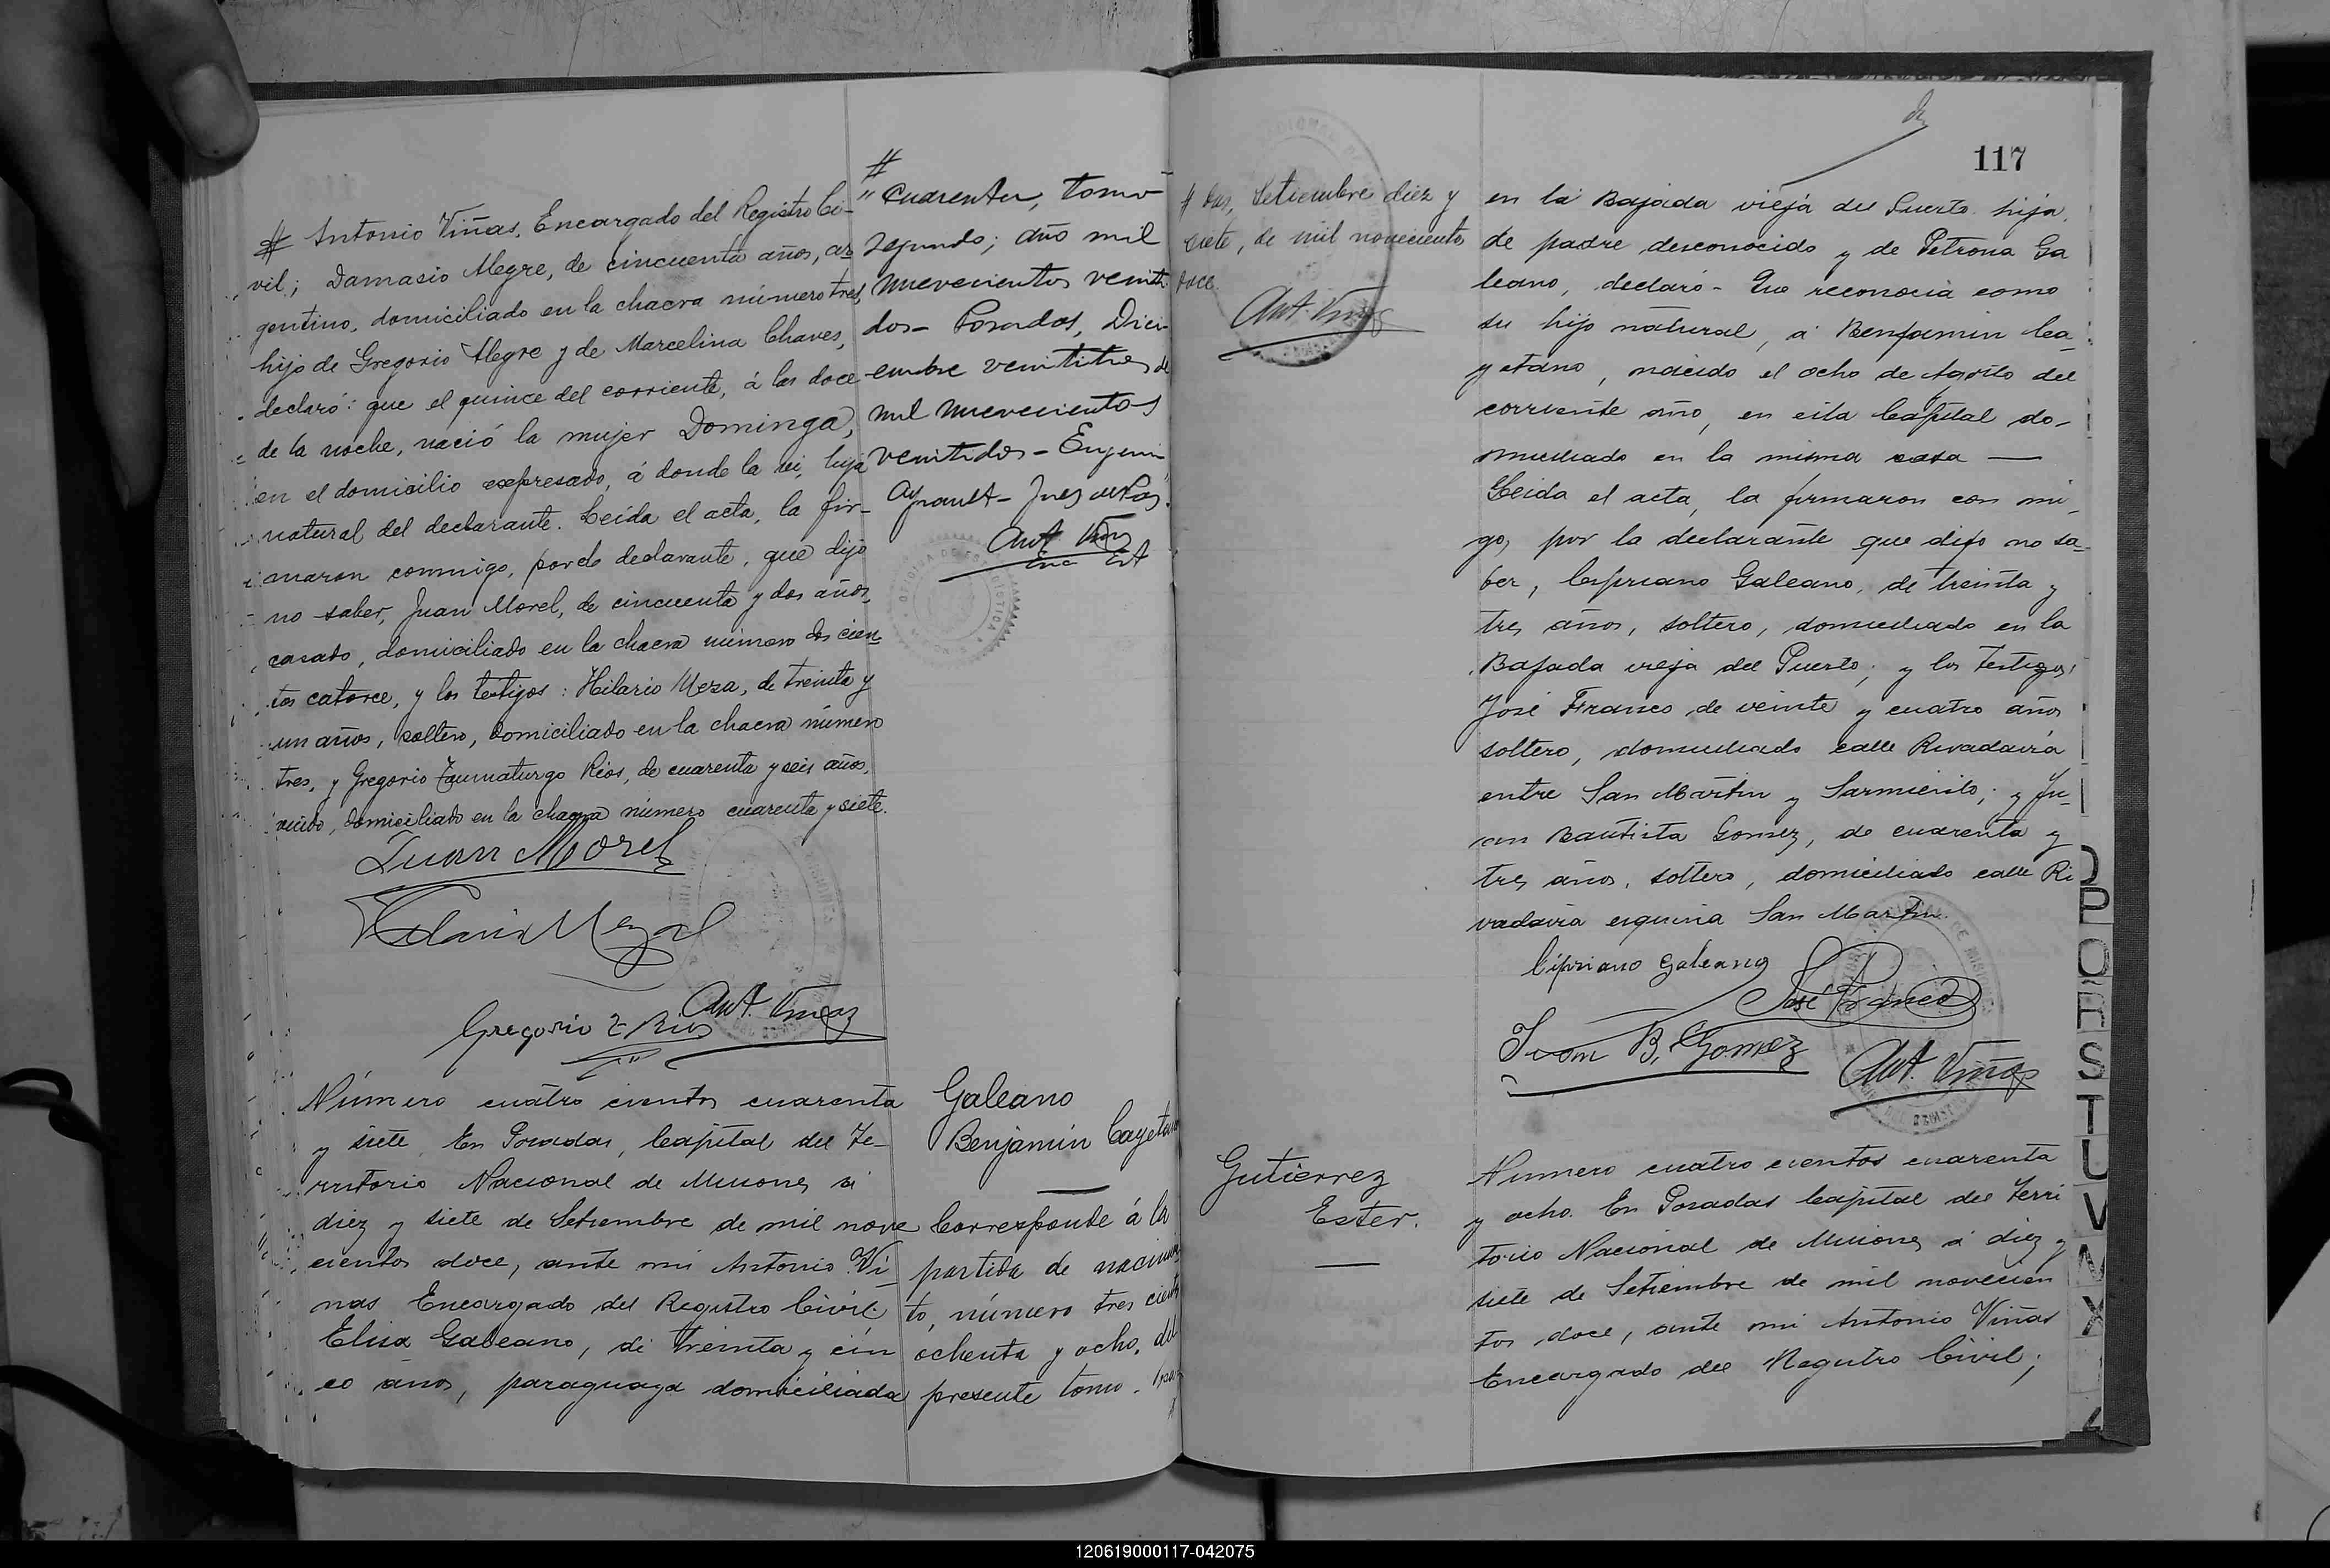 # Antonio Viñas, Encargado del Registro Ci-
vil; Damasio Alegre, de cincuenta años, ar-
gentino, domiciliado en la chacra número tres,
hijo de Gregorio Alegre y de Marcelina Chaves,
declaró: que el quince del corriente, á las doce
de la noche, nació la mujer Dominga,
en el domicilio expresado, á donde la vi, hija
natural del declarante. Leída el acta, la fir-
maron conmigo, por el declarante, que dijo
no saber, Juan Morel, de cincuenta y dos años,
casado, domiciliado en la chacra número dos cien-
tos catorce, y los testigos: Hilario Meza, de treinta y
un años, soltero, domiciliado en la chacra número
tres, y Gregorio Taumaturgo Rios, de cuarenta y seis años,
viudo, domiciliado en la chacra número cuarenta y siete.
Juan Morel
Hilario Meza
Gregorio T Rios
Ant. Viñas
#
" cuarenta, tomo
segundo; año mil
nuevecientos veinti
dos- Posadas, Dici-
embre veintitres de
mil nuevecientos
veintidos- Eugenio
Ant. Viñas
Número cuatro cientos cuarenta
y siete. En Posadas, Capital del Te-
rritorio Nacional de Misiones, á
diez y siete de Setiembre de mil nove
cientos doce, ante mi Antonio Vi-
ñas Encargado del Registro Civil:
Elisa Galeano, de treinta y cin
co años, paraguaya domiciliada
Galeano
Benjamin Cayetano
Corresponde á la
partida de nacimien
to, número tres cientos
ochenta y ocho, del
presente tomo.
117
# das, Setiembre diez y
siete, de mil novecientos
doce.
Ant. Viñas
en la Bajada vieja del Puerto. hija
de padre desconocido y de Petrona Ga
leano, declaró- Que reconocia como
su hijo natural, á Benjamin Ca-
yetano, nacido el ocho de Agosto del
corriente año, en esta Capital do-
miciliado en la misma casa —
Leida el acta, la firmaron con mi-
go, por la declarante que dijo no sa-
ber, Cipriano Galeano, de treinta y
tres años, soltero, domiciliado en la
Bajada vieja del Puerto; y los testigos,
José Franco de veinte y cuatro años
soltero, domiciliado calle Rivadavia
entre San Martin y Sarmiento; y Ju-
an Bautista Gomez, de cuarenta y
tres años, soltero, domiciliado calle Ri
vadavia esquina San Martin.
Cipriano Galeano
José Franco
Juan B. Gomez
Ant. Viñas
Gutierrez
Ester.
Numero cuatro cientos cuarenta
y ocho. En Posadas Capital del Terri
torio Nacional de Misiones á diez y
siete de Setiembre de mil novecien
tos doce, ante mi Antonio Viñas
Encargado del Registro Civil;
O
P
Q
R
S
T
U
V
X
Z
120619000117-042075